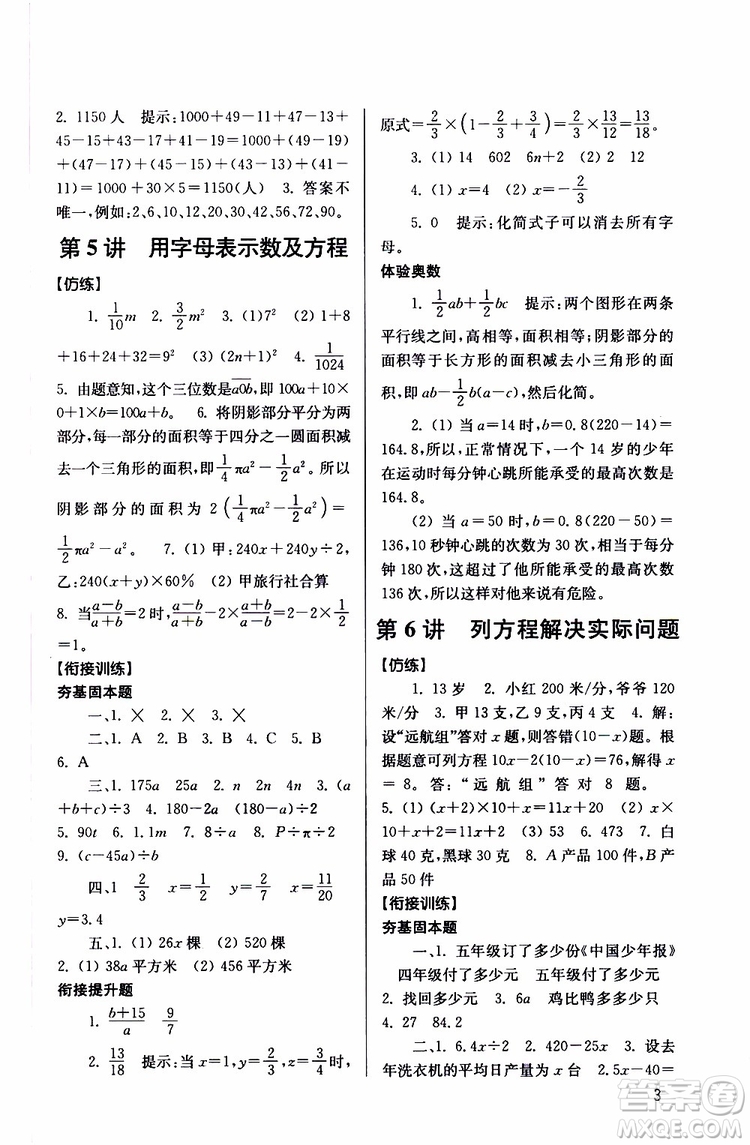 2. 1150 人 提示:1000+49-11+47-13+
45-15+43-17+41-19=1000+(49-19)
+(47-17)+(45-15)+(43-13)+(41-
11)=1000+30×5=1150(人) 3. 答案不
唯一,例如:2、6、10、12、20、30、42、90。
第 5 讲 用字母表示数及方程
【仿练】
1. 1/10 m 2. 3/2 m² 3. (1)7² (2) 1+8
+16+24+32=9² (3) (2n+1)² 4. 1/1024
5. 由题意知,这个三位数是a0b,即 100a+10×
0+1×b=100a+b。 6. 将阴影部分平分为两
部分,每一部分的面积等于四分之一圆面积减
去一个三角形的面积,即 1/4 πa²-1/2 a²。所以
阴影部分的面积为 2(1/4 πa²-1/2 a²)=
1/2 πa²-a²。 7. (1) 甲:240x+240y÷2
乙:240(x+y)×60% (2) 甲旅行社合算
8. 当(a-b)/(a+b)=2时,(a-b)/(a+b)-2×(a+b)/(a-b)=2-2×1/2
=1。
【衔接训练】
夯基固本题
一、1. × 2. × 3. ×
二、1. A 2. B 3. B 4. C 5. B
6. A
三、1. 175a 25a 2. n 2n 4n 3. (a
+b+c)÷3 4. 180-2a (180-a)÷2
5. 90t 6. 1.1m 7. 2π+2r 8. P÷π÷2
9. (c-45a)÷b
四、1. 2/3 x=1/2 y=2/3 x=11/20
y=3.4
五、1. (1) 26x 棵 (2) 520 棵
2. (1) 38a 平方米 (2) 456 平方米
衔接提升题
1. (b+15)/a 9/7
2. 13/18 提示:当x=1/2,y=2/3,z=3/4时,
原式=2/3×(1-1/2+3/4)=2/3×13/12=13/18。
3. (1) 14 602 6n+2 (2) 2 12
4. (1) x=4 (2) x=-2/3
5. 0 提示:化简式子可以消去所有字
母。
体验奥数
1. 1/2 ab+1/2 bc 提示:两个图形在两条
平行线之间,高相等,面积相等;阴影部分的
面积等于长方形的面积减去小三角形的面
积,即 ab-1/2 b(a-c),然后化简。
2. (1) 当 a=14 时,b=0.8(220-14)=
164.8,所以,正常情况下,一个 14 岁的少年
在运动时每分钟心跳所能承受的最高次数是
164.8。
(2) 当 a=50 时,b=0.8(220-50)=
136,10 秒钟心跳的次数为 30 次,所以每分钟
心跳 180 次,超过了他所能承受的最高次数
136 次,所以对他来说有危险。
第 6 讲 列方程解决实际问题
【仿练】
1. 13 岁 2. 小红 200 米/分,爷爷 120
米/分 3. 甲 13 支,乙 9 支,丙 4 支 4. 解:
设“远航组”答对 x 题,则答错(10-x)题。
根据题意可列方程 10x-2(10-x)=76,解得 x
=8。答:“远航组”答对 8 题。
5. (1) (x+2)×10+x (2) (x+2)×10+x=x×
10+x+2+18 (3) 53 6. 473 7. 白
球 40 克,黑球 30 克 8. A 产品 100 件,B 产
品 50 件
【衔接训练】
夯基固本题
一、1. 五年级订了多少份《中国少年报》
四年级付了多少元 五年级付了多少元
2. 找回多少元 3. 6a 鸡比鸭多多少只
4. 27 84.2
二、1. 6.4x÷2 2. 420-25x 3. 设去
年洗衣机的平均日产量为 x 台 2.5x-40=
3
答案圈
MXQE.COM